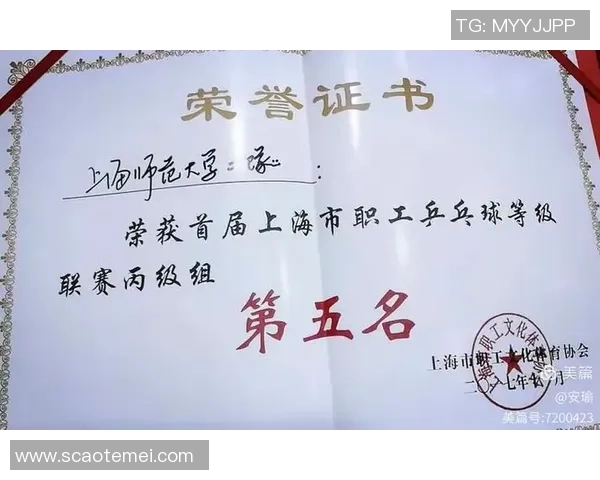 TG: MYYJJPP
荣誉证书
上海师范大学二队:
荣获首届上海市职工乒乓球等级
联赛丙级组
第五名
上海市职工文化体育协会
二〇一七年十月
美篇
@安瑜
美篇号:7200423
www.scaotemei.com